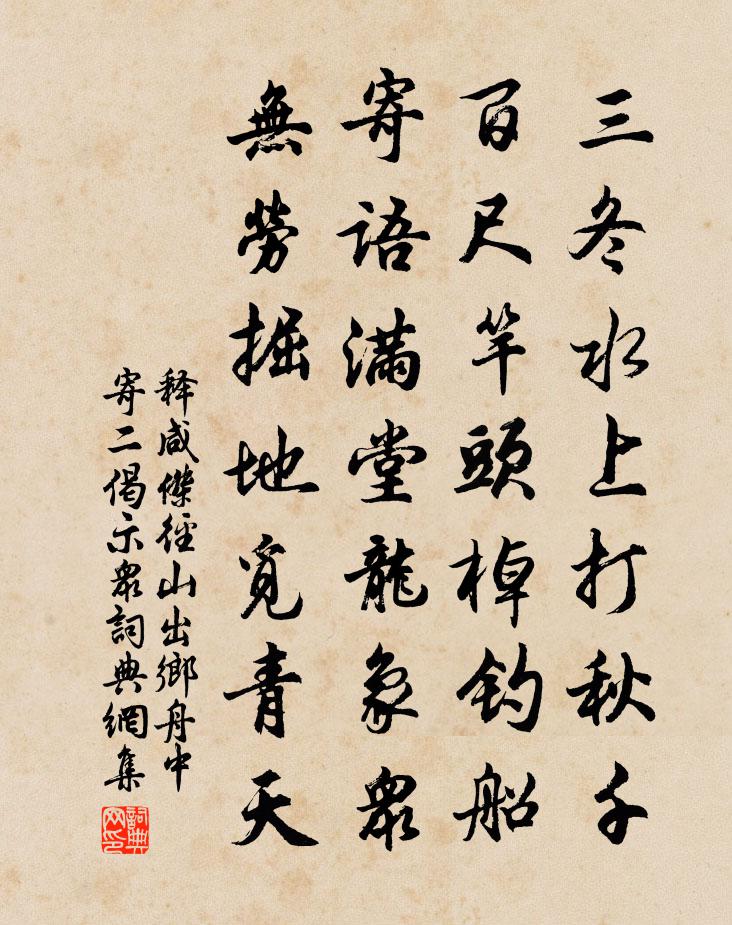 三冬水上打秋千
百尺竿頭棹釣船
寄語滿堂龍象衆
無勞掘地覓青天
释咸傑徑山出鄉舟中
寄二偈示衆詞典網集
詞典
网印